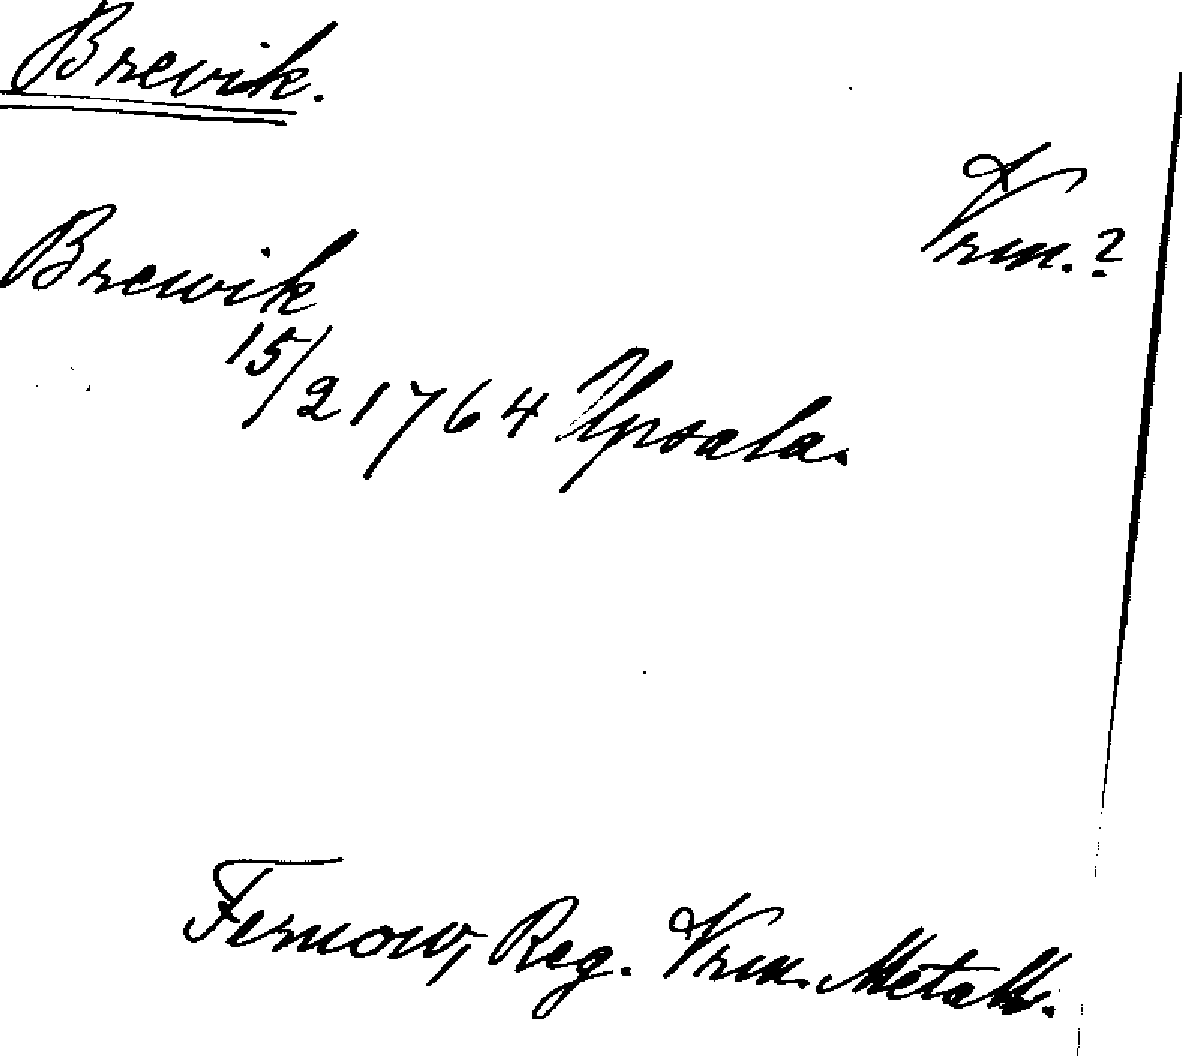 Brevik.
Vrm.?
Brewik
15/2 1764 Upsala.
Fernow, Reg. Vrm. Metall.